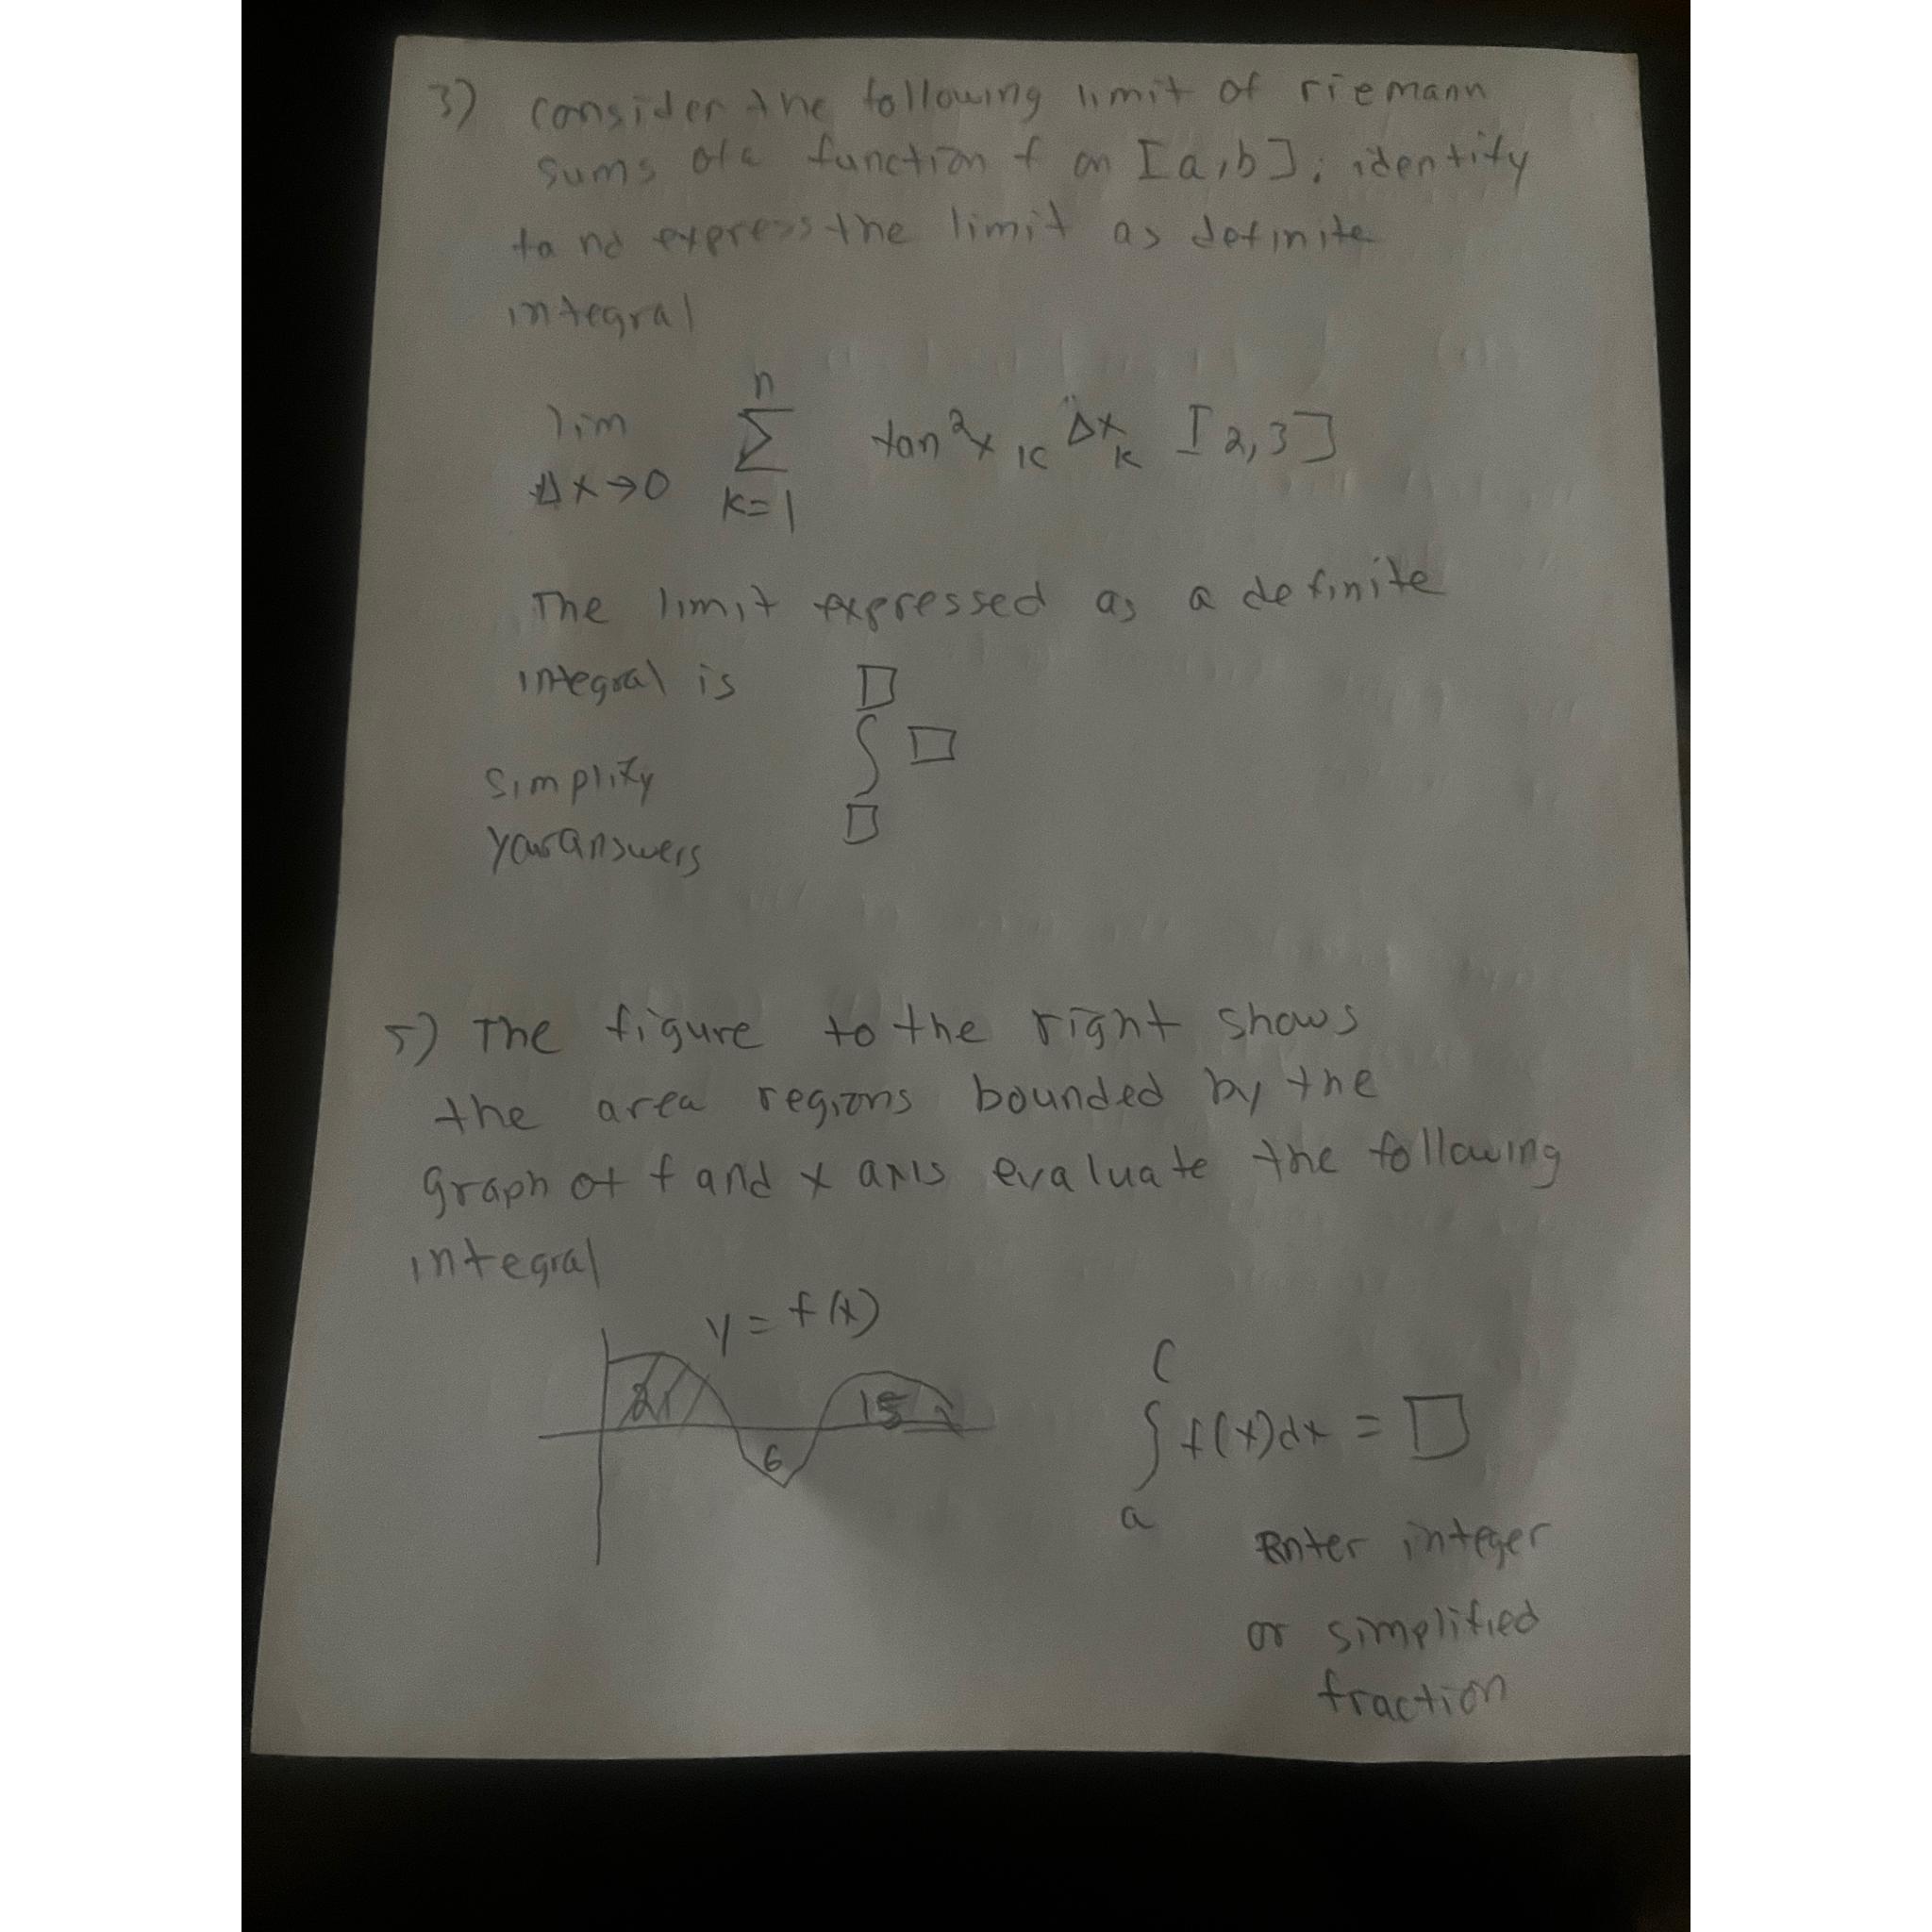 3) consider the following limit of riemann
sums of a function f on [a,b]; identify
fa nd express the limit as definite
integral
n
lim Σ tan²x k Δx k [2,3]
Δx→0 k=1
The limit expressed as a definite
integral is □
∫ □
simplify □
your answers
5) The figure to the right shows
the area regions bounded by the
graph of f and x axis evaluate the following
integral
y = f(x)
21 6
c
∫ f(x)dx = □
a
Enter integer
or simplified
fraction